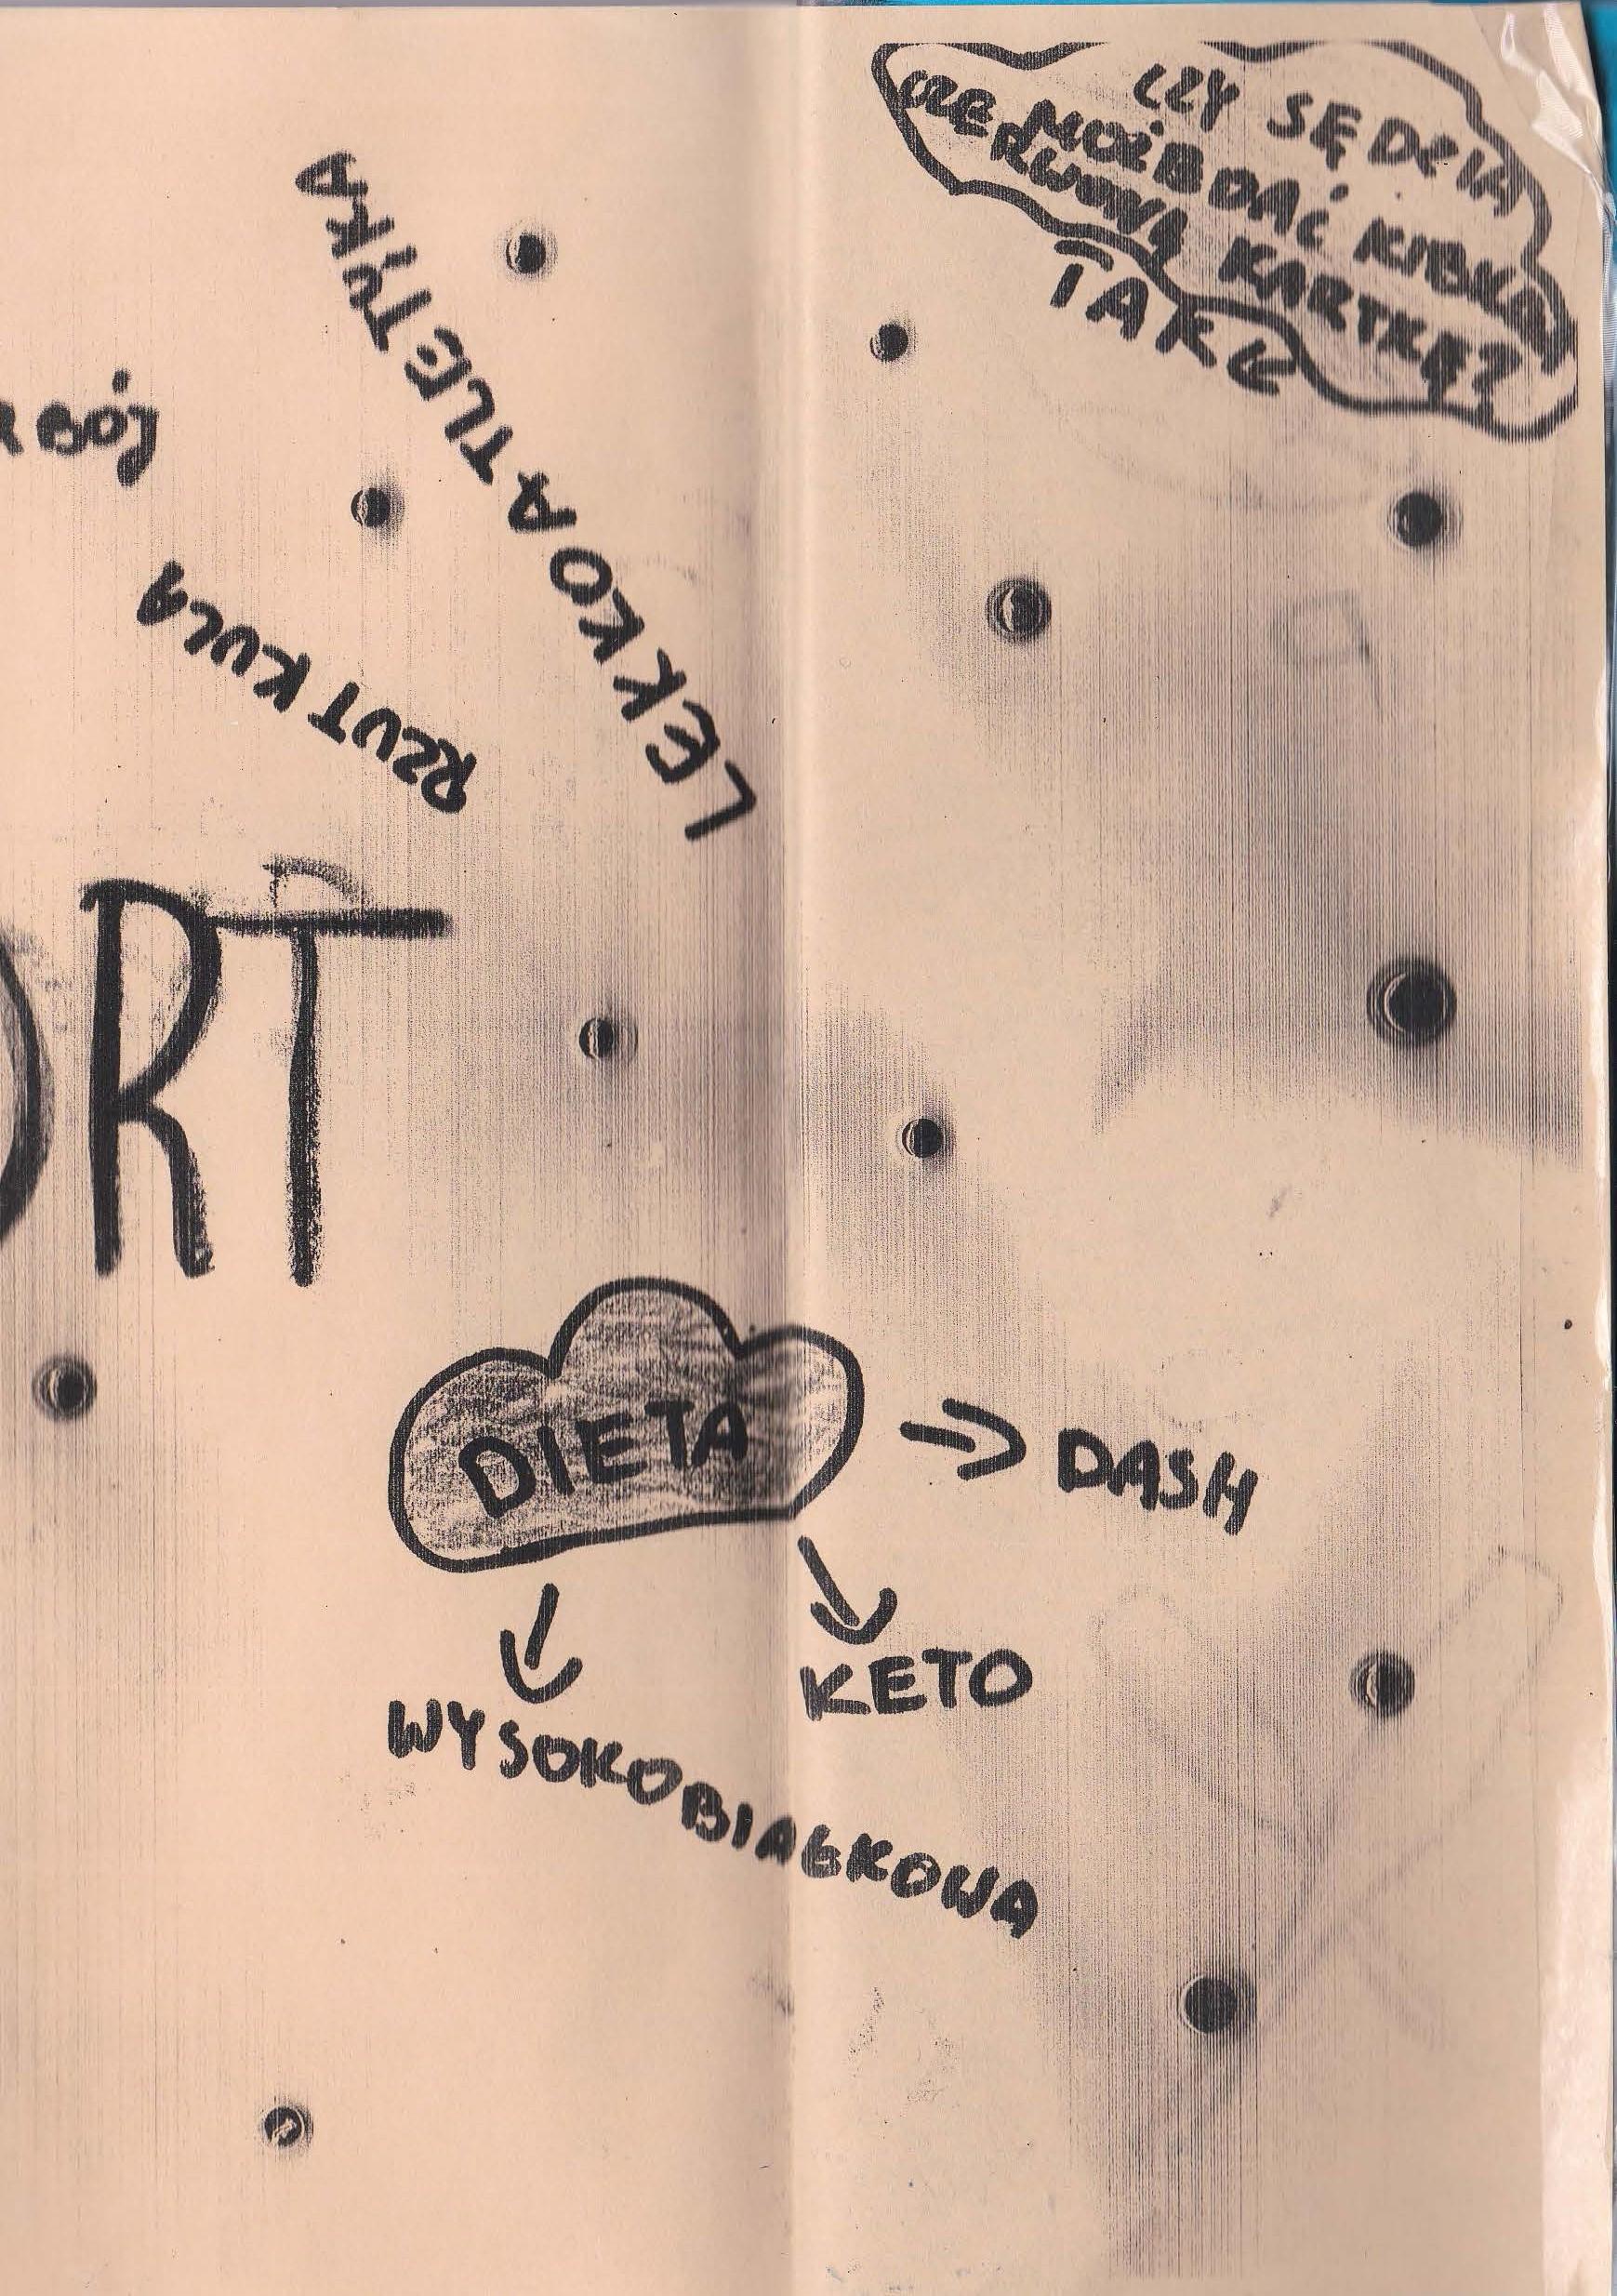 CZY SĘDZIA
MOŻE DAĆ KIBICA
CZERWONĄ KARTKĘ?
TAK
LEKKOATLETYKA
RBÓJ
RZUT KULA
ORT
DIETA
DASH
KETO
WYSOKOBIAŁKOWA